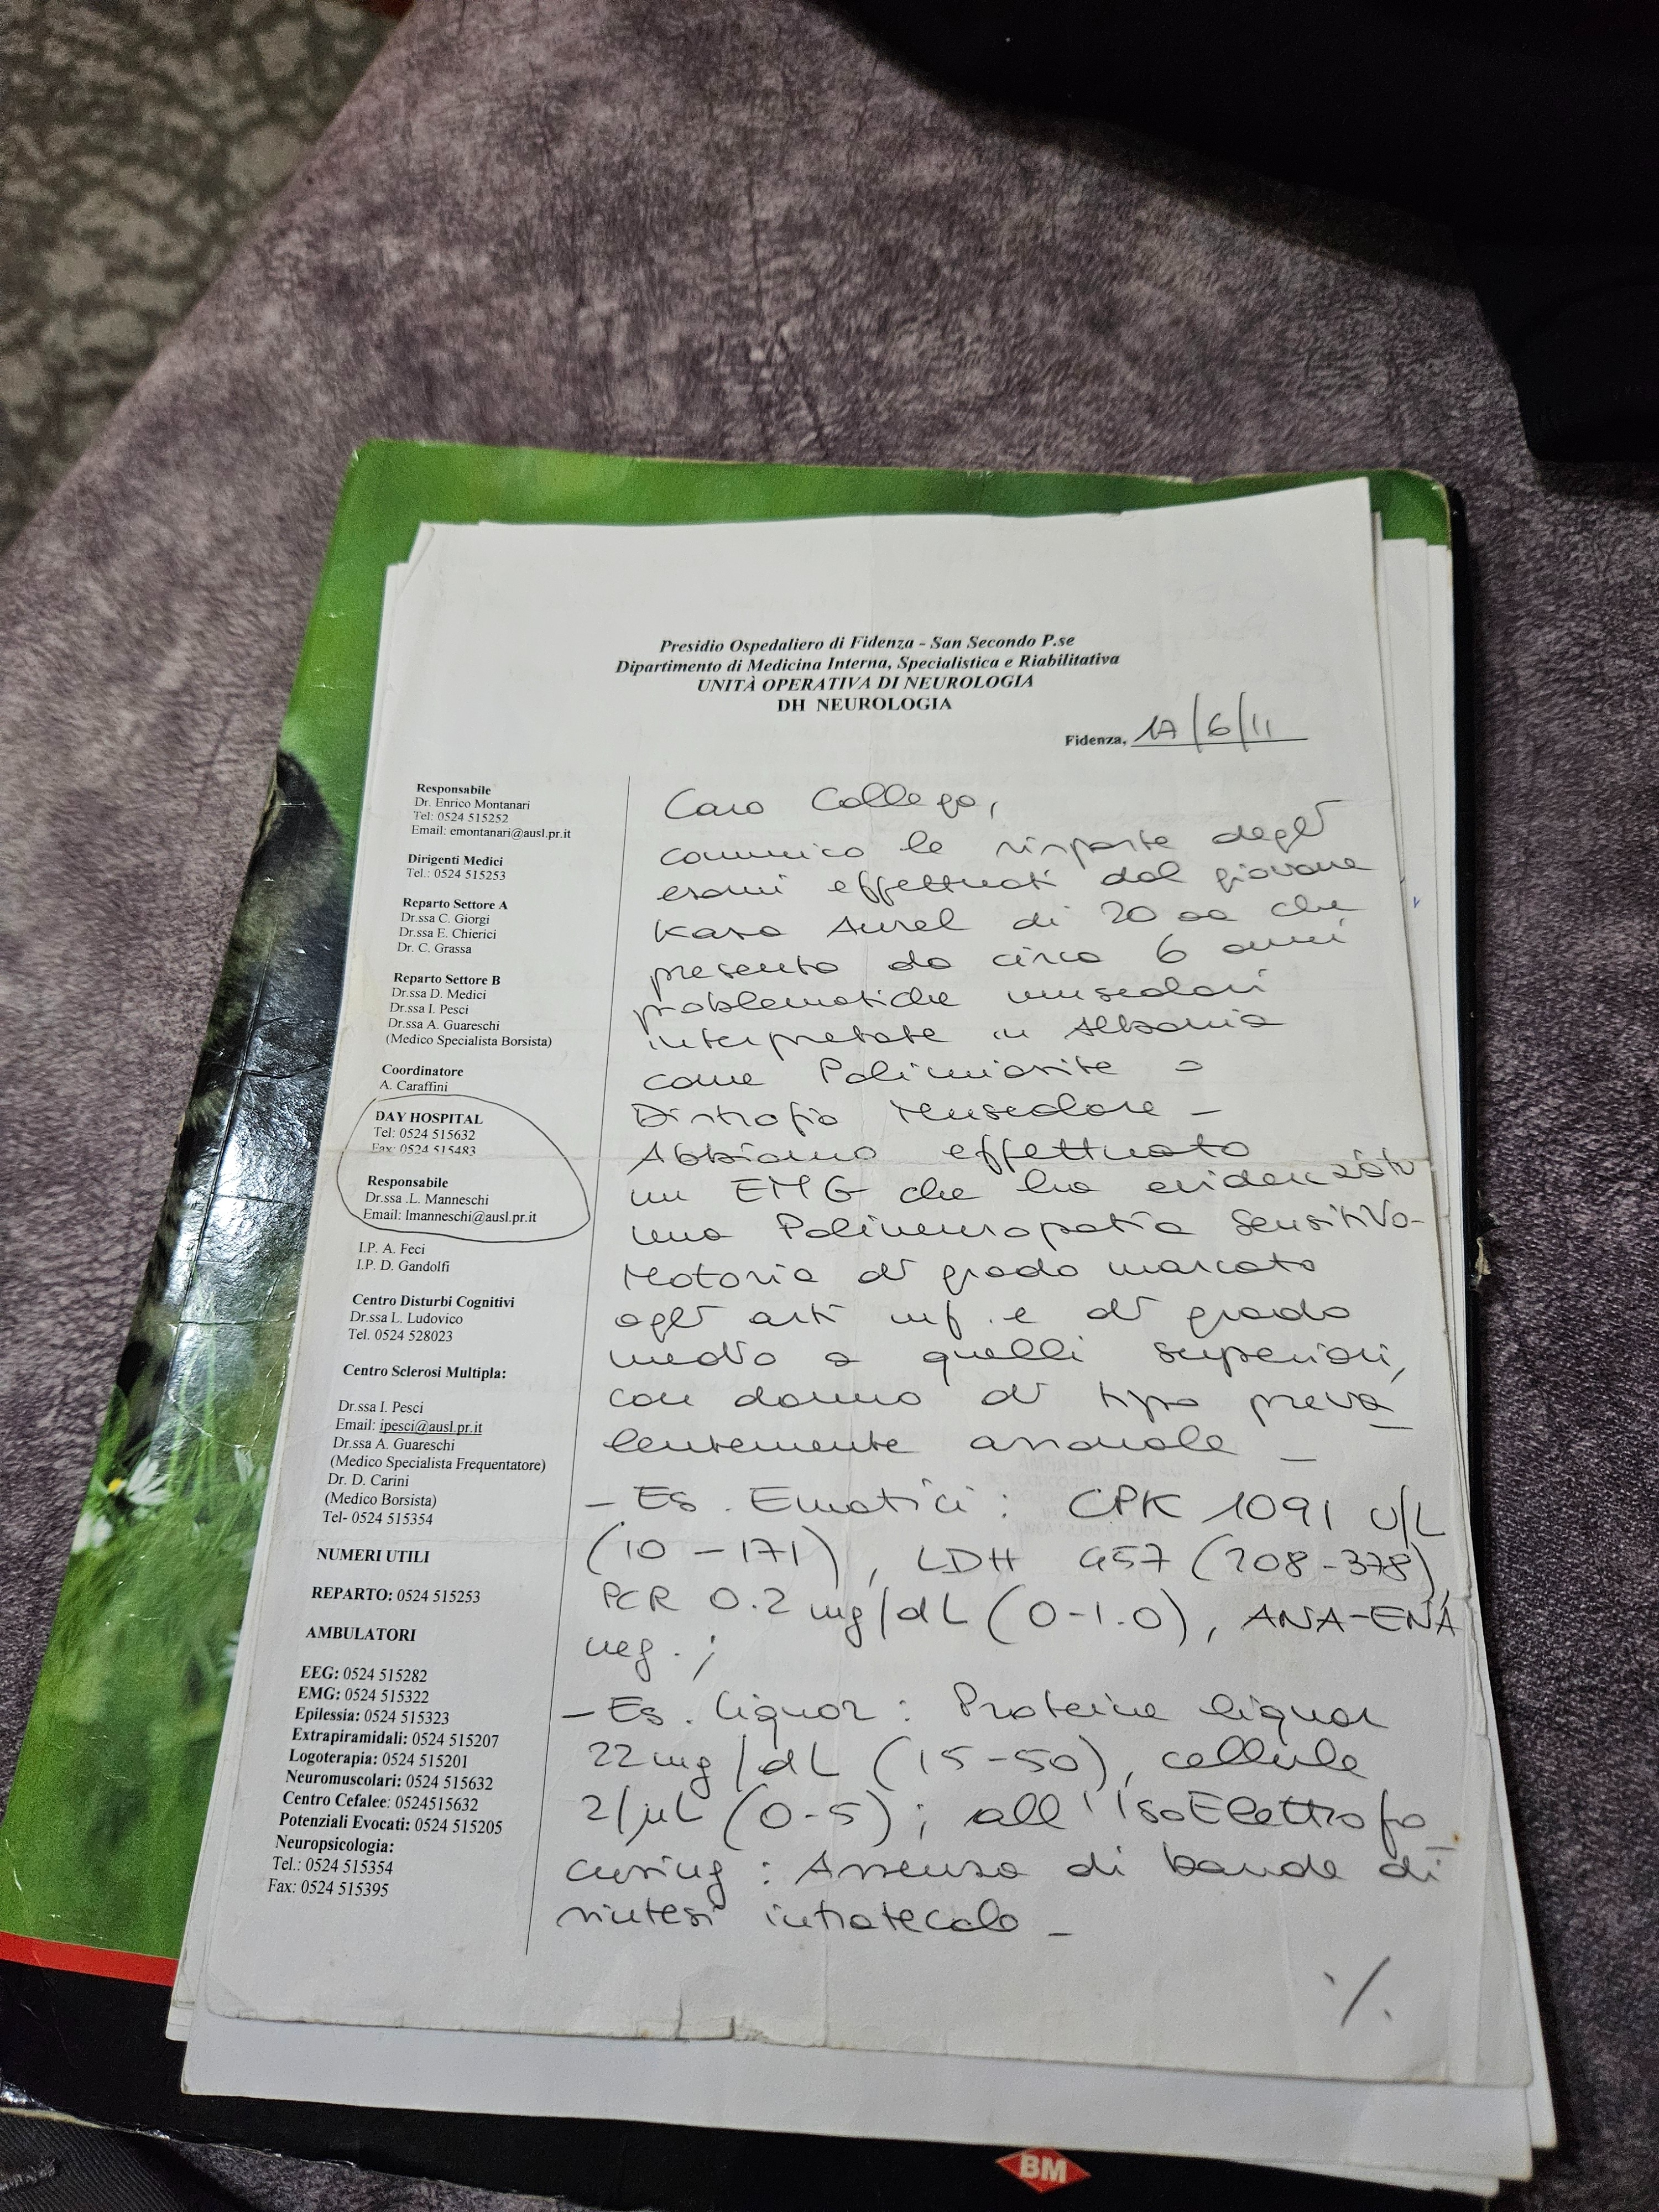 Presidio Ospedaliero di Fidenza - San Secondo P.se
Dipartimento di Medicina Interna, Specialistica e Riabilitativa
UNITÀ OPERATIVA DI NEUROLOGIA
DH NEUROLOGIA
Fidenza, 17/6/11
Responsabile
Dr. Enrico Montanari
Tel: 0524 515252
Email: emontanari@ausl.pr.it
Dirigenti Medici
Tel.: 0524 515253
Reparto Settore A
Dr.ssa C. Giorgi
Dr.ssa E. Chierici
Dr. C. Grassa
Reparto Settore B
Dr.ssa D. Medici
Dr.ssa I. Pesci
Dr.ssa A. Guareschi
(Medico Specialista Borsista)
Coordinatore
A. Caraffini
DAY HOSPITAL
Tel: 0524 515632
Fax: 0524 515483
Responsabile
Dr.ssa .L. Manneschi
Email: lmanneschi@ausl.pr.it
I.P. A. Feci
I.P. D. Gandolfi
Centro Disturbi Cognitivi
Dr.ssa L. Ludovico
Tel. 0524 528023
Centro Sclerosi Multipla:
Dr.ssa I. Pesci
Email: ipesci@ausl.pr.it
Dr.ssa A. Guareschi
(Medico Specialista Frequentatore)
Dr. D. Carini
(Medico Borsista)
Tel- 0524 515354
NUMERI UTILI
REPARTO: 0524 515253
AMBULATORI
EEG: 0524 515282
EMG: 0524 515322
Epilessia: 0524 515323
Extrapiramidali: 0524 515207
Logoterapia: 0524 515201
Neuromuscolari: 0524 515632
Centro Cefalee: 0524515632
Potenziali Evocati: 0524 515205
Neuropsicologia:
Tel.: 0524 515354
Fax: 0524 515395
Caro Collega,
comunico le risposte degli
esami effettuati dal giovane
Kaso Aurel di 20 aa che
presenta da circa 6 anni
problematiche muscolari
interpretate in Albania
come Polimiosite o
Distrofia Muscolare -
Abbiamo effettuato
un EMG che ha evidenziato
una Polineuropatia Sensitivo-
Motoria di grado marcato
agli arti inf. e di grado
medio a quelli superiori,
con danno di tipo preva
lentemente assonale -
- Es. Ematici: CPK 1091 U/L
(10-171), LDH 457 (208-378),
PCR 0.2 mg/dL (0-1.0), ANA-ENA
neg.;
- Es. liquor: Proteine liquor
22 mg/dL (15-50), cellule
2/µL (0-5); all'IsoElettrofo
cusing: Assenza di bande di
sintesi intratecale -
./.
BM